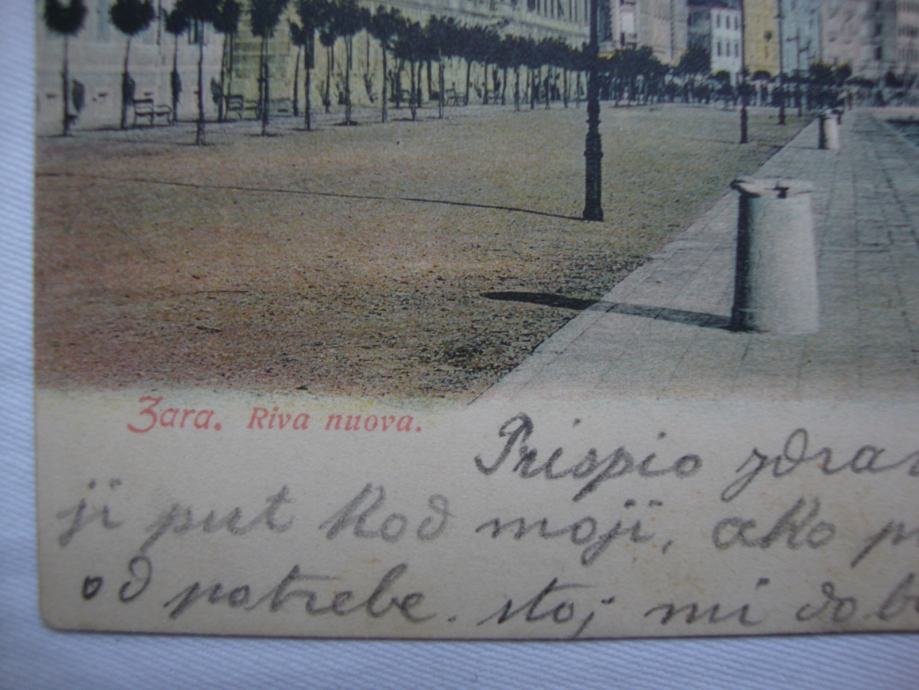 Zara. Riva nuova.
Prispio zdrav
ji put kod moji, ako p
od potrebe. stoj mi dob